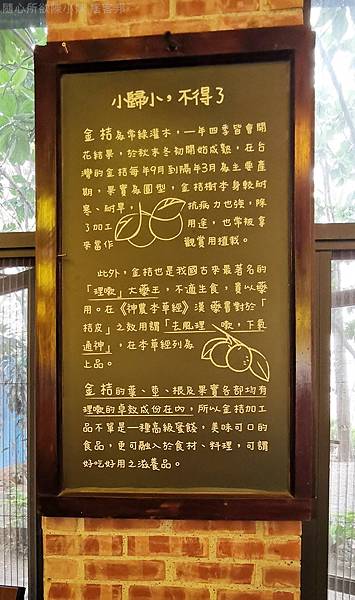 隨心所欲隊小隊 痞客邦
小歸小，不得了
金桔為常綠灌木，一年四季皆會開
花結果，於秋末冬初開始成熟，在台
灣的金桔每年9月到隔年3月為主要產
期，果實為圓型，金桔樹本身較耐
寒、耐旱，抗病力也強，除
了加工用途，也常被拿
來當作觀賞用植栽。
此外，金桔也是我國古來最著名的
「理嗽」大藥王，不適生食，貴以藥
用。在《神農本草經》漢藥書對於「
桔皮」之效用謂「去風理、嗽，下氣
通神」，在本草經列為
上品。
金桔的葉、莖、根及果實各部均有
理嗽的卓效成份在內，所以金桔加工
品不單是一種高級蜜餞，美味可口的
食品，更可融入於食材、料理，可謂
好吃好用之滋養品。